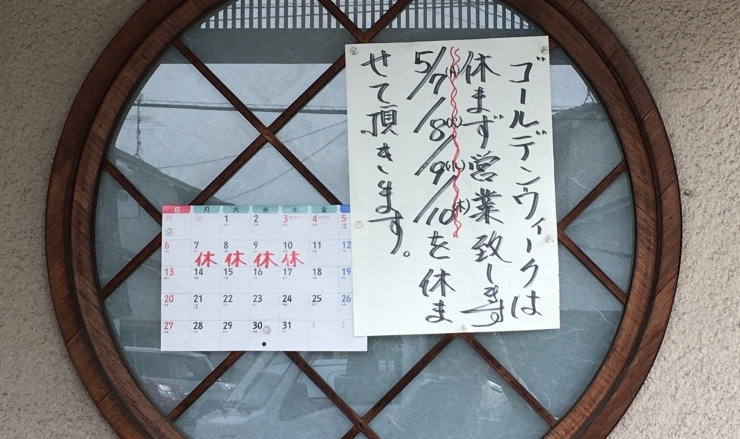 ゴールデンウィークは
休まず営業致します
5/7(月)/8(火)/9(水)/10(木)を休ま
せて頂きます。
日 月 火 水 木 金
29 30 1 2 3 4 5
6 7 8 9 10 11 12
休 休 休 休
13 14 15 16 17 18 19
20 21 22 23 24 25 26
27 28 29 30 31 1 2